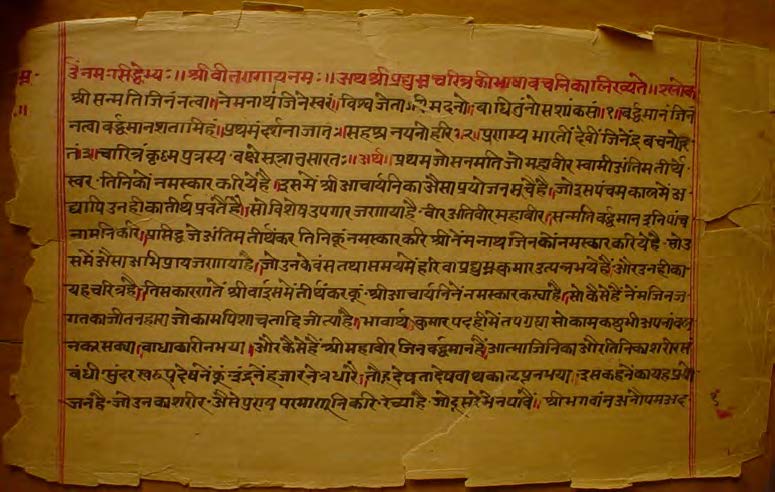 उंनमःसिद्धेभ्यः॥श्रीवीतरागायनमः॥अथश्रीप्रद्युम्नचरित्रकीभाषावचनिकालिख्यते॥श्लोक
श्रीसन्मतिजिनंनत्वा॥नेमनाथंजिनेस्वरं॥विश्वजेता मदनो॥बाधितुंनोससांकसः॥१॥वर्द्धमानंजिनं
नत्वावर्द्धमानशतामिहं॥प्रथमंदर्शनाजातः॥सहश्रनयनोहरिः॥२॥प्रणम्यभारतींदेवींजिनेंद्रबचनो
चारित्रंकृष्णपुत्रस्य॥वक्षेसूत्रानुसारतः॥अर्थ॥प्रथमजोसनमतिजोमहावीरस्वामीअंतिमतीर्थ
स्वर॥तिनिकोंनमस्कारकरियेहै॥उसमेंश्रीआचार्यनिकाअैसाप्रयोजनसूचैहै॥जोउसपंचमकालमेंअ
द्यापिउनहीकातीर्थप्रवर्तैहै॥सोविशेषउपगारजरणायाहै॥वीरअतिवीरमहावीर॥सन्मतिवर्द्धमानइनिपांच
नामनिकरि॥प्रासिद्धजेअंतिमतीर्थंकरतिनिकूंनमस्कारकरिश्रीनेमनाथजिनकोंनमस्कारकरियेहै॥सोउ
समेंअैसाअभिप्रायजरणायाहै॥जोउनकेवंसतथासमयमेंहरिवाप्रद्युम्नकुमारउत्पन्नभयेहैं॥औरउनहीका
यहचरित्रहै॥तिसकारणतेंश्रीवाईसमेंतीर्थंकरकूं॥श्रीआचार्यनिनेंनमस्कारकस्याहै॥सोकैसेहैंनेंमजिनज
गतकाजीतनहाराजोकामपिशाचताहिजीत्याहै॥भावार्थ॥कुमारपदहीमेंतपग्रह्यासोकामकछुभीअपनांवल
नकरसक्या॥वाधाकारीनभया॥औरकैसेहैंश्रीमहावीरजिनवर्द्धमानहैं॥आत्माजिनिकाऔरतिनिकाशरीरसं
बंधीसुंदर देषनेंकूंइंद्रनेंहजारनेत्रधारे॥तौहूदेषतादेषतायका भया॥उसकहनेकायहप्रयो
जनहै॥जोउनकाशरीर॥अैसेपुण्यपरमाणूनिकरिरच्याहै॥जोदूसरेमेंनपावै॥श्रीभगवांनअनौपमअद